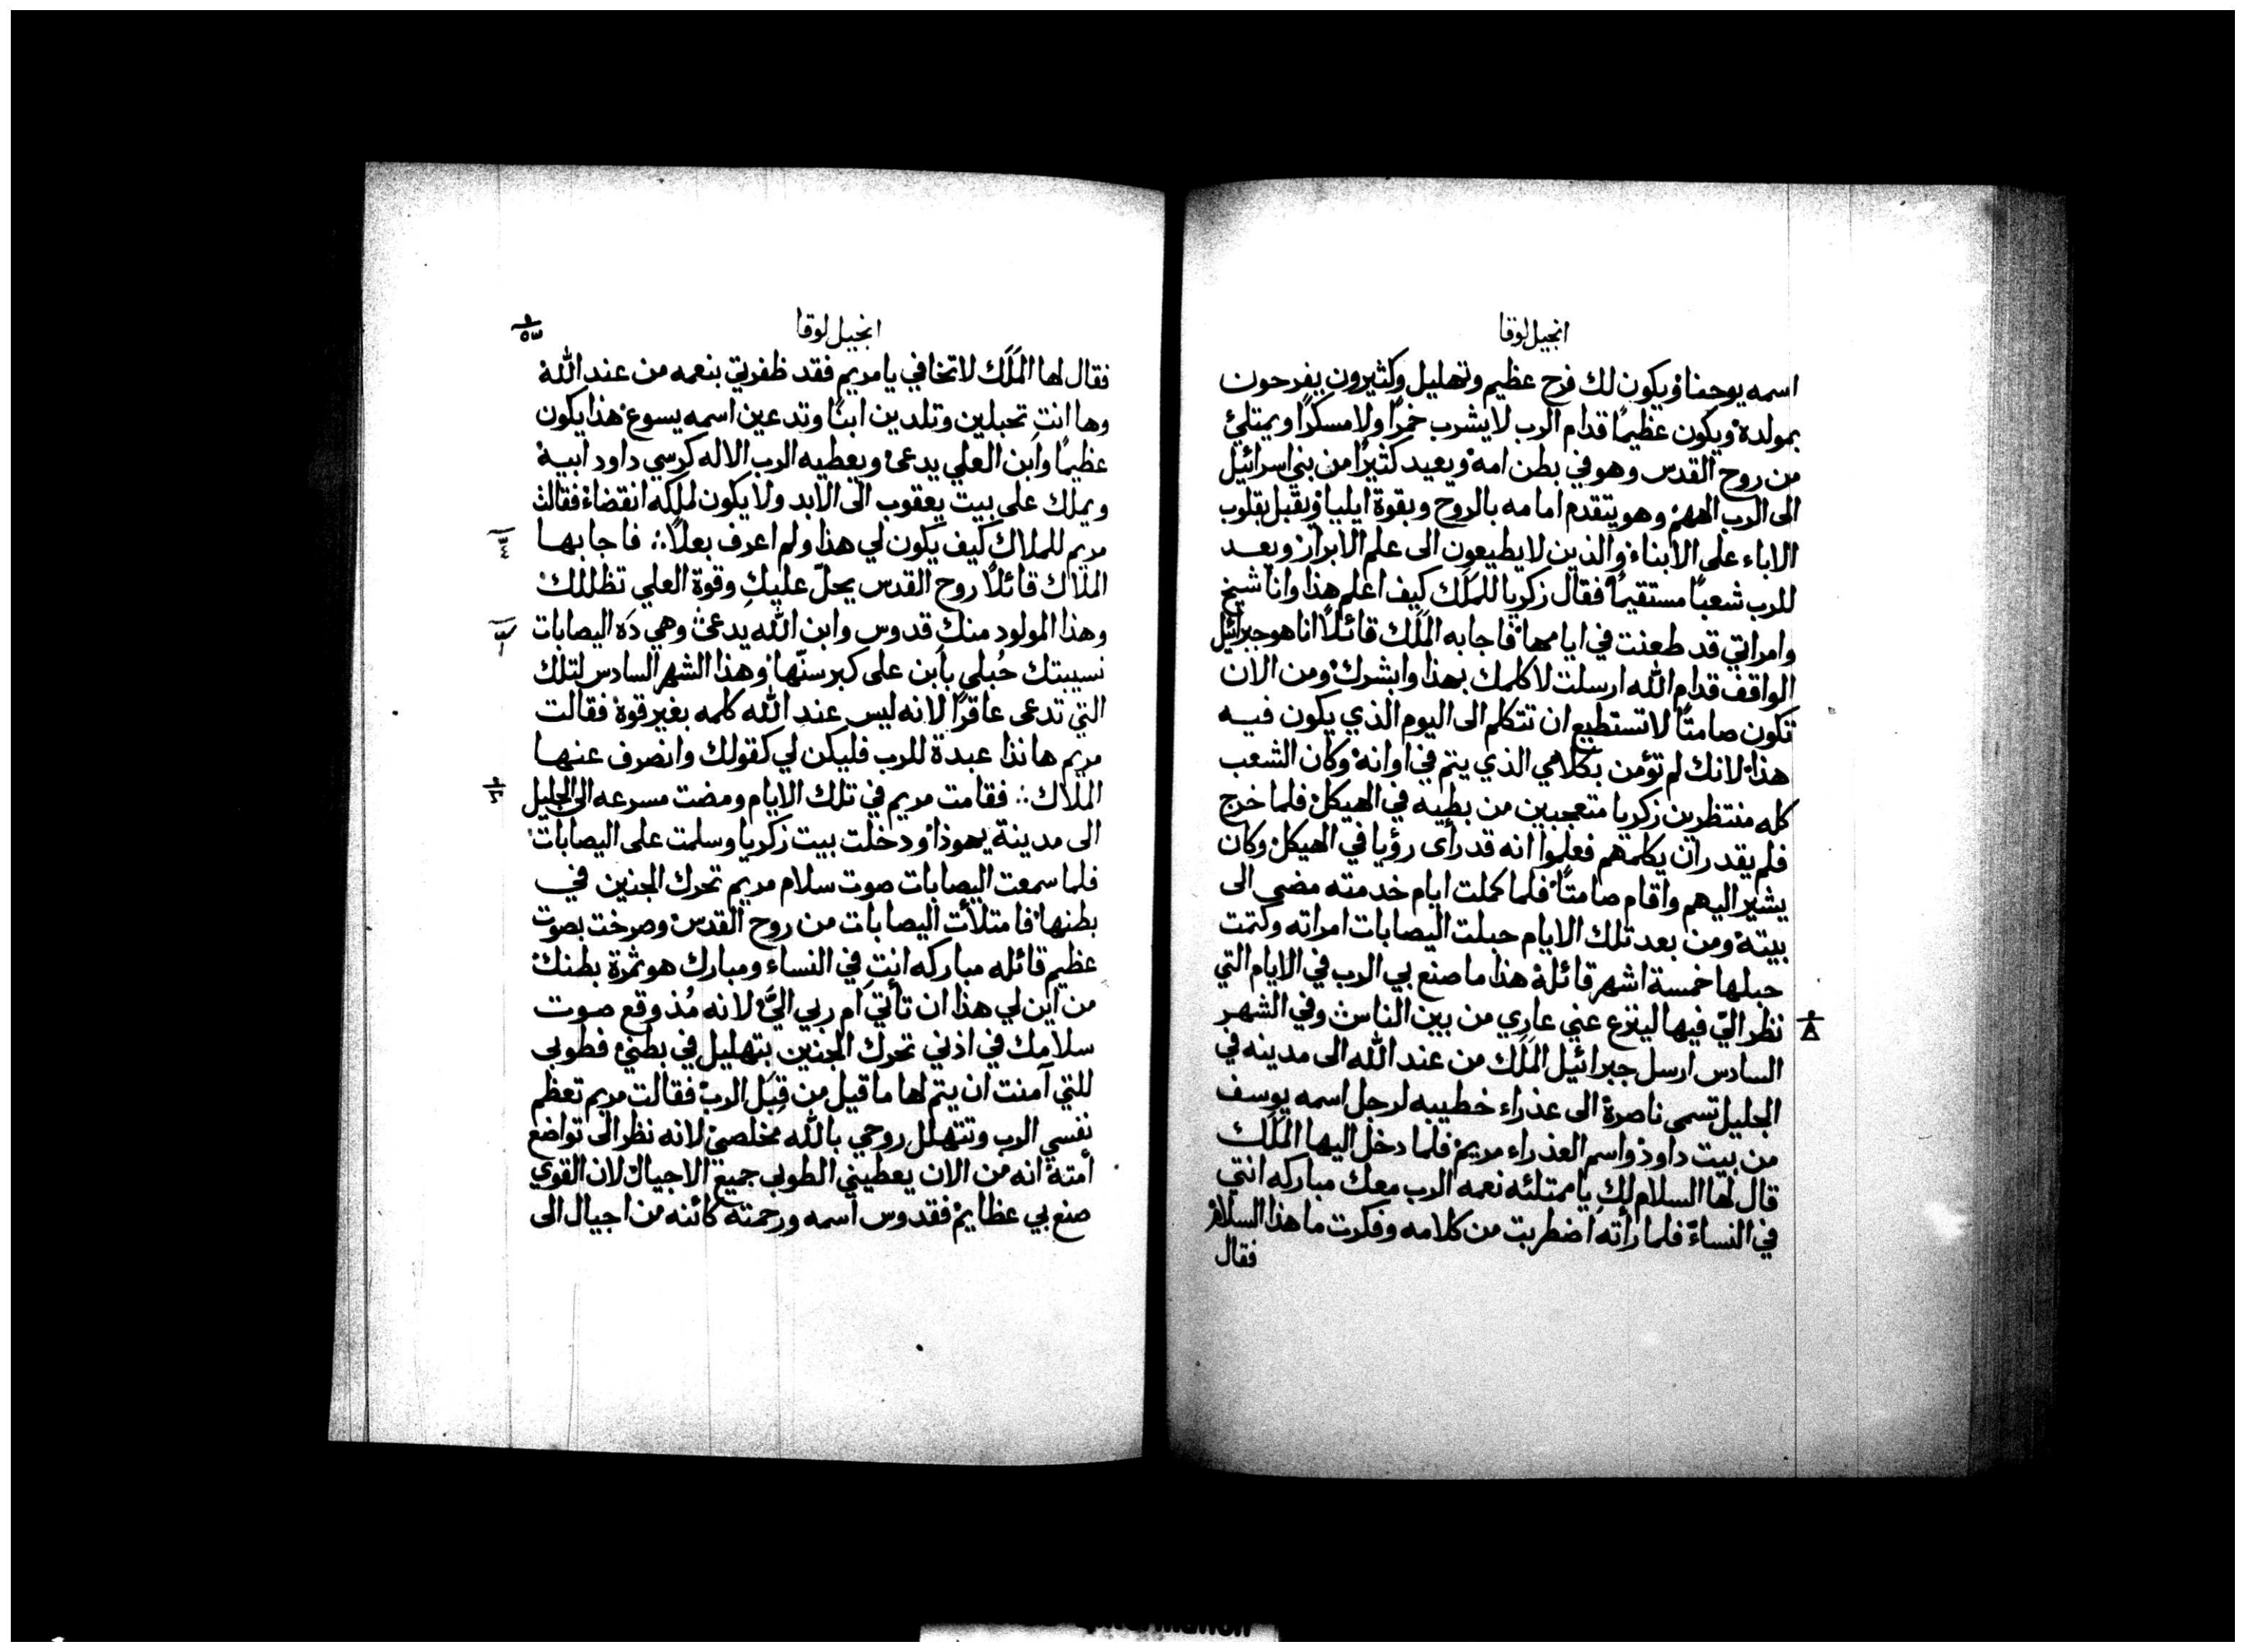 انجيل لوقا
اسمه يوحنا ويكون لك فرح عظيم وتهليل وكثيرون يفرحون
بمولده ويكون عظيمًا قدام الرب لا يشرب خمرًا ولا مسكرًا ويمتلئ
من روح القدس وهو في بطن امه ويعيد كثيرًا من بني اسرائيل
الى الرب الههم وهو يتقدم امامه بالروح وبقوة ايليا ويقبل بقلوب
الاباء على الابناء والذين لا يطيعون الى علم الابرار ويعد
للرب شعبًا مستقيمًا فقال زكريا للملَك كيف اعلم هذا وانا شيخ
وامراتي قد طعنت في ايامها فاجابه الملَك قائلًا انا هو جبرائيل
الواقف قدام الله ارسلت لاكلمك بهذا وابشرك ومن الان
تكون صامتًا لا تستطيع ان تتكلم الى اليوم الذي يكون فيه
هذا لانك لم تؤمن بكلامي الذي يتم في اوانه وكان الشعب
كله منتظرين زكريا متعجبين من بطيه في الهيكل فلما خرج
فلم يقدر ان يكلمهم فعلموا انه قد رأى رؤيا في الهيكل وكان
يشير اليهم واقام صامتًا فلما كملت ايام خدمته مضى الى
بيته ومن بعد تلك الايام حبلت اليصابات امراته وكتمت
حبلها خمسة اشهر قائلة هذا ما صنع بي الرب في الايام التي
نظر اليّ فيها لينزع عني عاري من بين الناس وفي الشهر
السادس ارسل جبرائيل الملَك من عند الله الى مدينه في
الجليل تسمى ناصرة الى عذراء خطيبه لرجل اسمه يوسف
من بيت داود واسم العذراء مريم فلما دخل اليها الملَك
قال لها السلام لكِ يا ممتلئه نعمه الرب معك مباركه انتي
في النساء فلما راته اضطربت من كلامه وفكرت ما هذا السلام
فقال
انجيل لوقا
فقال لها الملَك لا تخافي يا مريم فقد ظفرتي بنعمه من عند الله
وها انتِ تحبلين وتلدين ابنًا وتدعين اسمه يسوع هذا يكون
عظيمًا وابن العلي يدعى ويعطيه الرب الاله كرسي داود ابيه
ويملك على بيت يعقوب الى الابد ولا يكون لملكه انقضاء فقالت
مريم للملاك كيف يكون لي هذا ولم اعرف بعلًا ∴ فاجابها
الملاك قائلًا روح القدس يحلّ عليكِ وقوة العلي تظللك
وهذا المولود منكِ قدوس وابن الله يدعى وهي ذه اليصابات
نسيبتك حُبلى بابن على كبر سنّها وهذا الشهر السادس لتلك
التي تدعى عاقرًا لانه ليس عند الله كلمه بغير قوة فقالت
مريم هانذا عبدة للرب فليكن لي كقولك وانصرف عنها
الملاك ∴ فقامت مريم في تلك الايام ومضت مسرعه الى الجليل
الى مدينة يهوذا ودخلت بيت زكريا وسلمت على اليصابات
فلما سمعت اليصابات صوت سلام مريم تحرك الجنين في
بطنها فامتلأت اليصابات من روح القدس وصرخت بصوت
عظيم قائله مباركه انتِ في النساء ومبارك هو ثمرة بطنك
من اين لي هذا ان تأتي ام ربي اليَّ لانه مُذ وقع صوت
سلامك في اذني تحرك الجنين بتهليل في بطني فطوبى
للتي آمنت ان يتم لها ما قيل من قِبَل الرب فقالت مريم تعظم
نفسي الرب وتتهلل روحي بالله مخلصي لانه نظر الى تواضع
أمته انه من الان يعطيني الطوبى جميع الاجيال لان القوي
صنع بي عظايم فقدوس اسمه ورحمته كائنه من اجيال الى